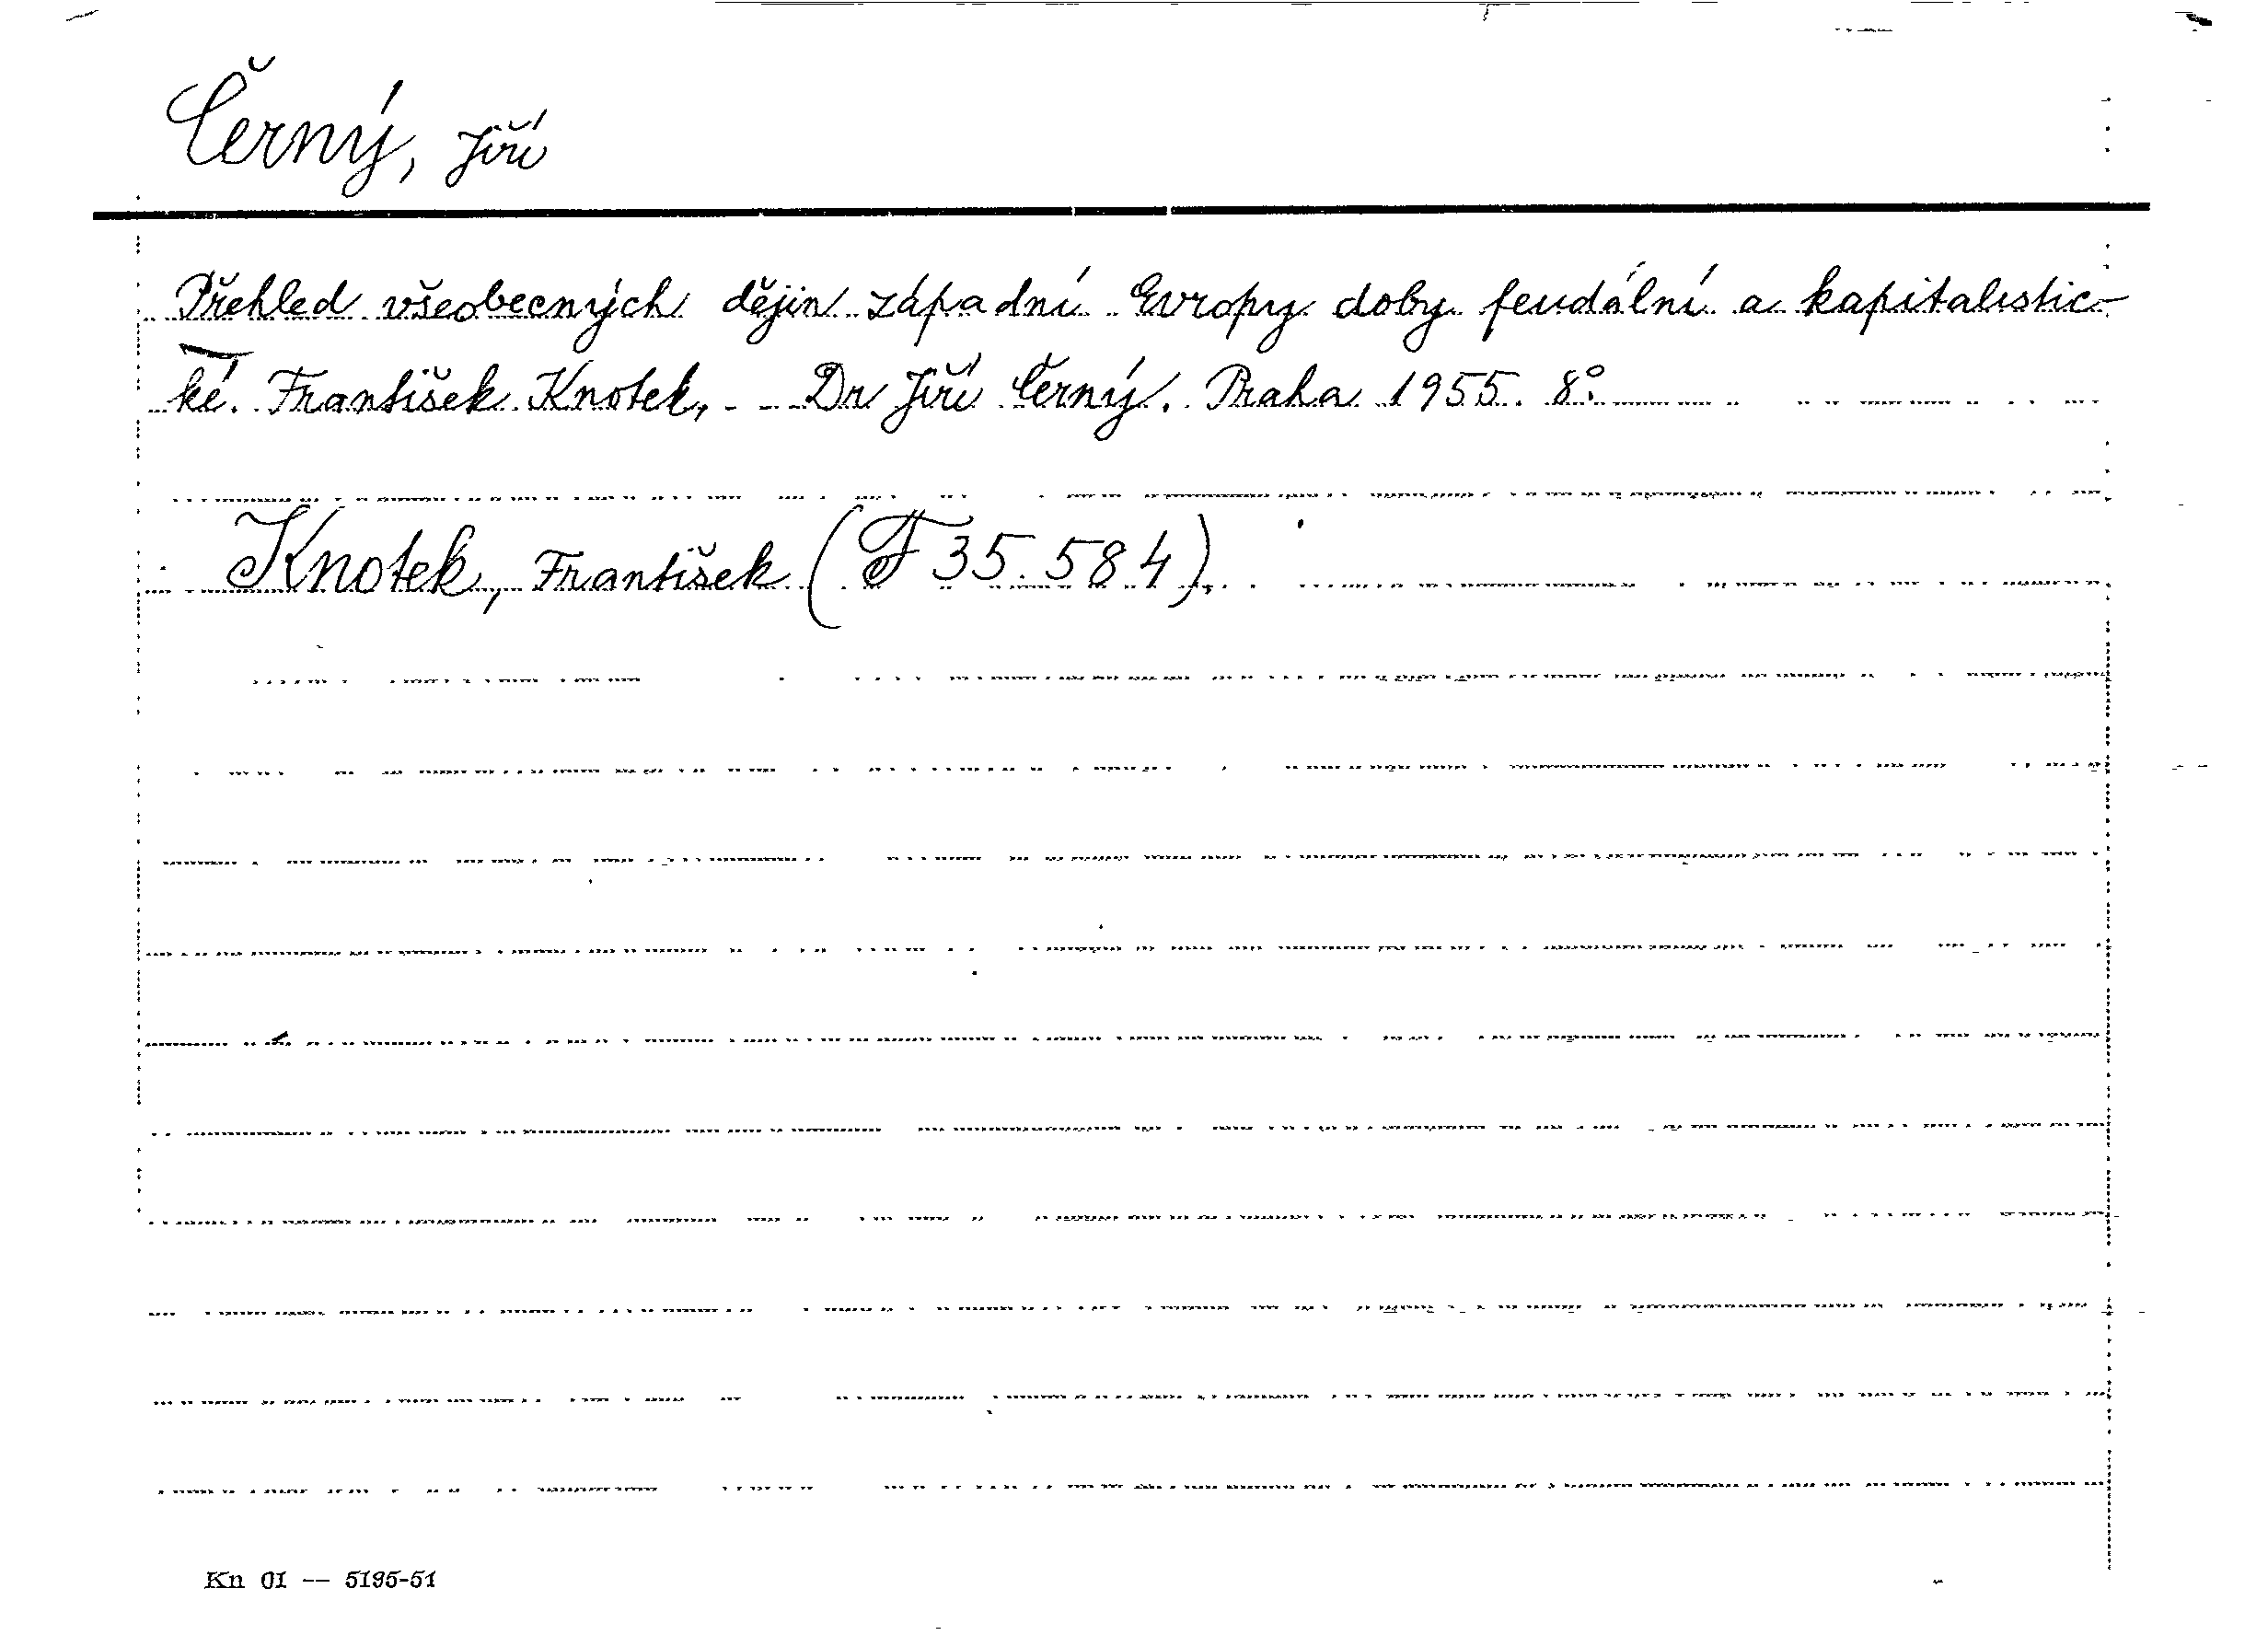 Černý, Jiří
Přehled všeobecných dějin západní Evropy doby feudální a kapitalistic-
ké. František Knotek, - Dr Jiří Černý. Praha 1955. 8°.
Knotek, František (F 35.584).
Kn 01 — 5195-51